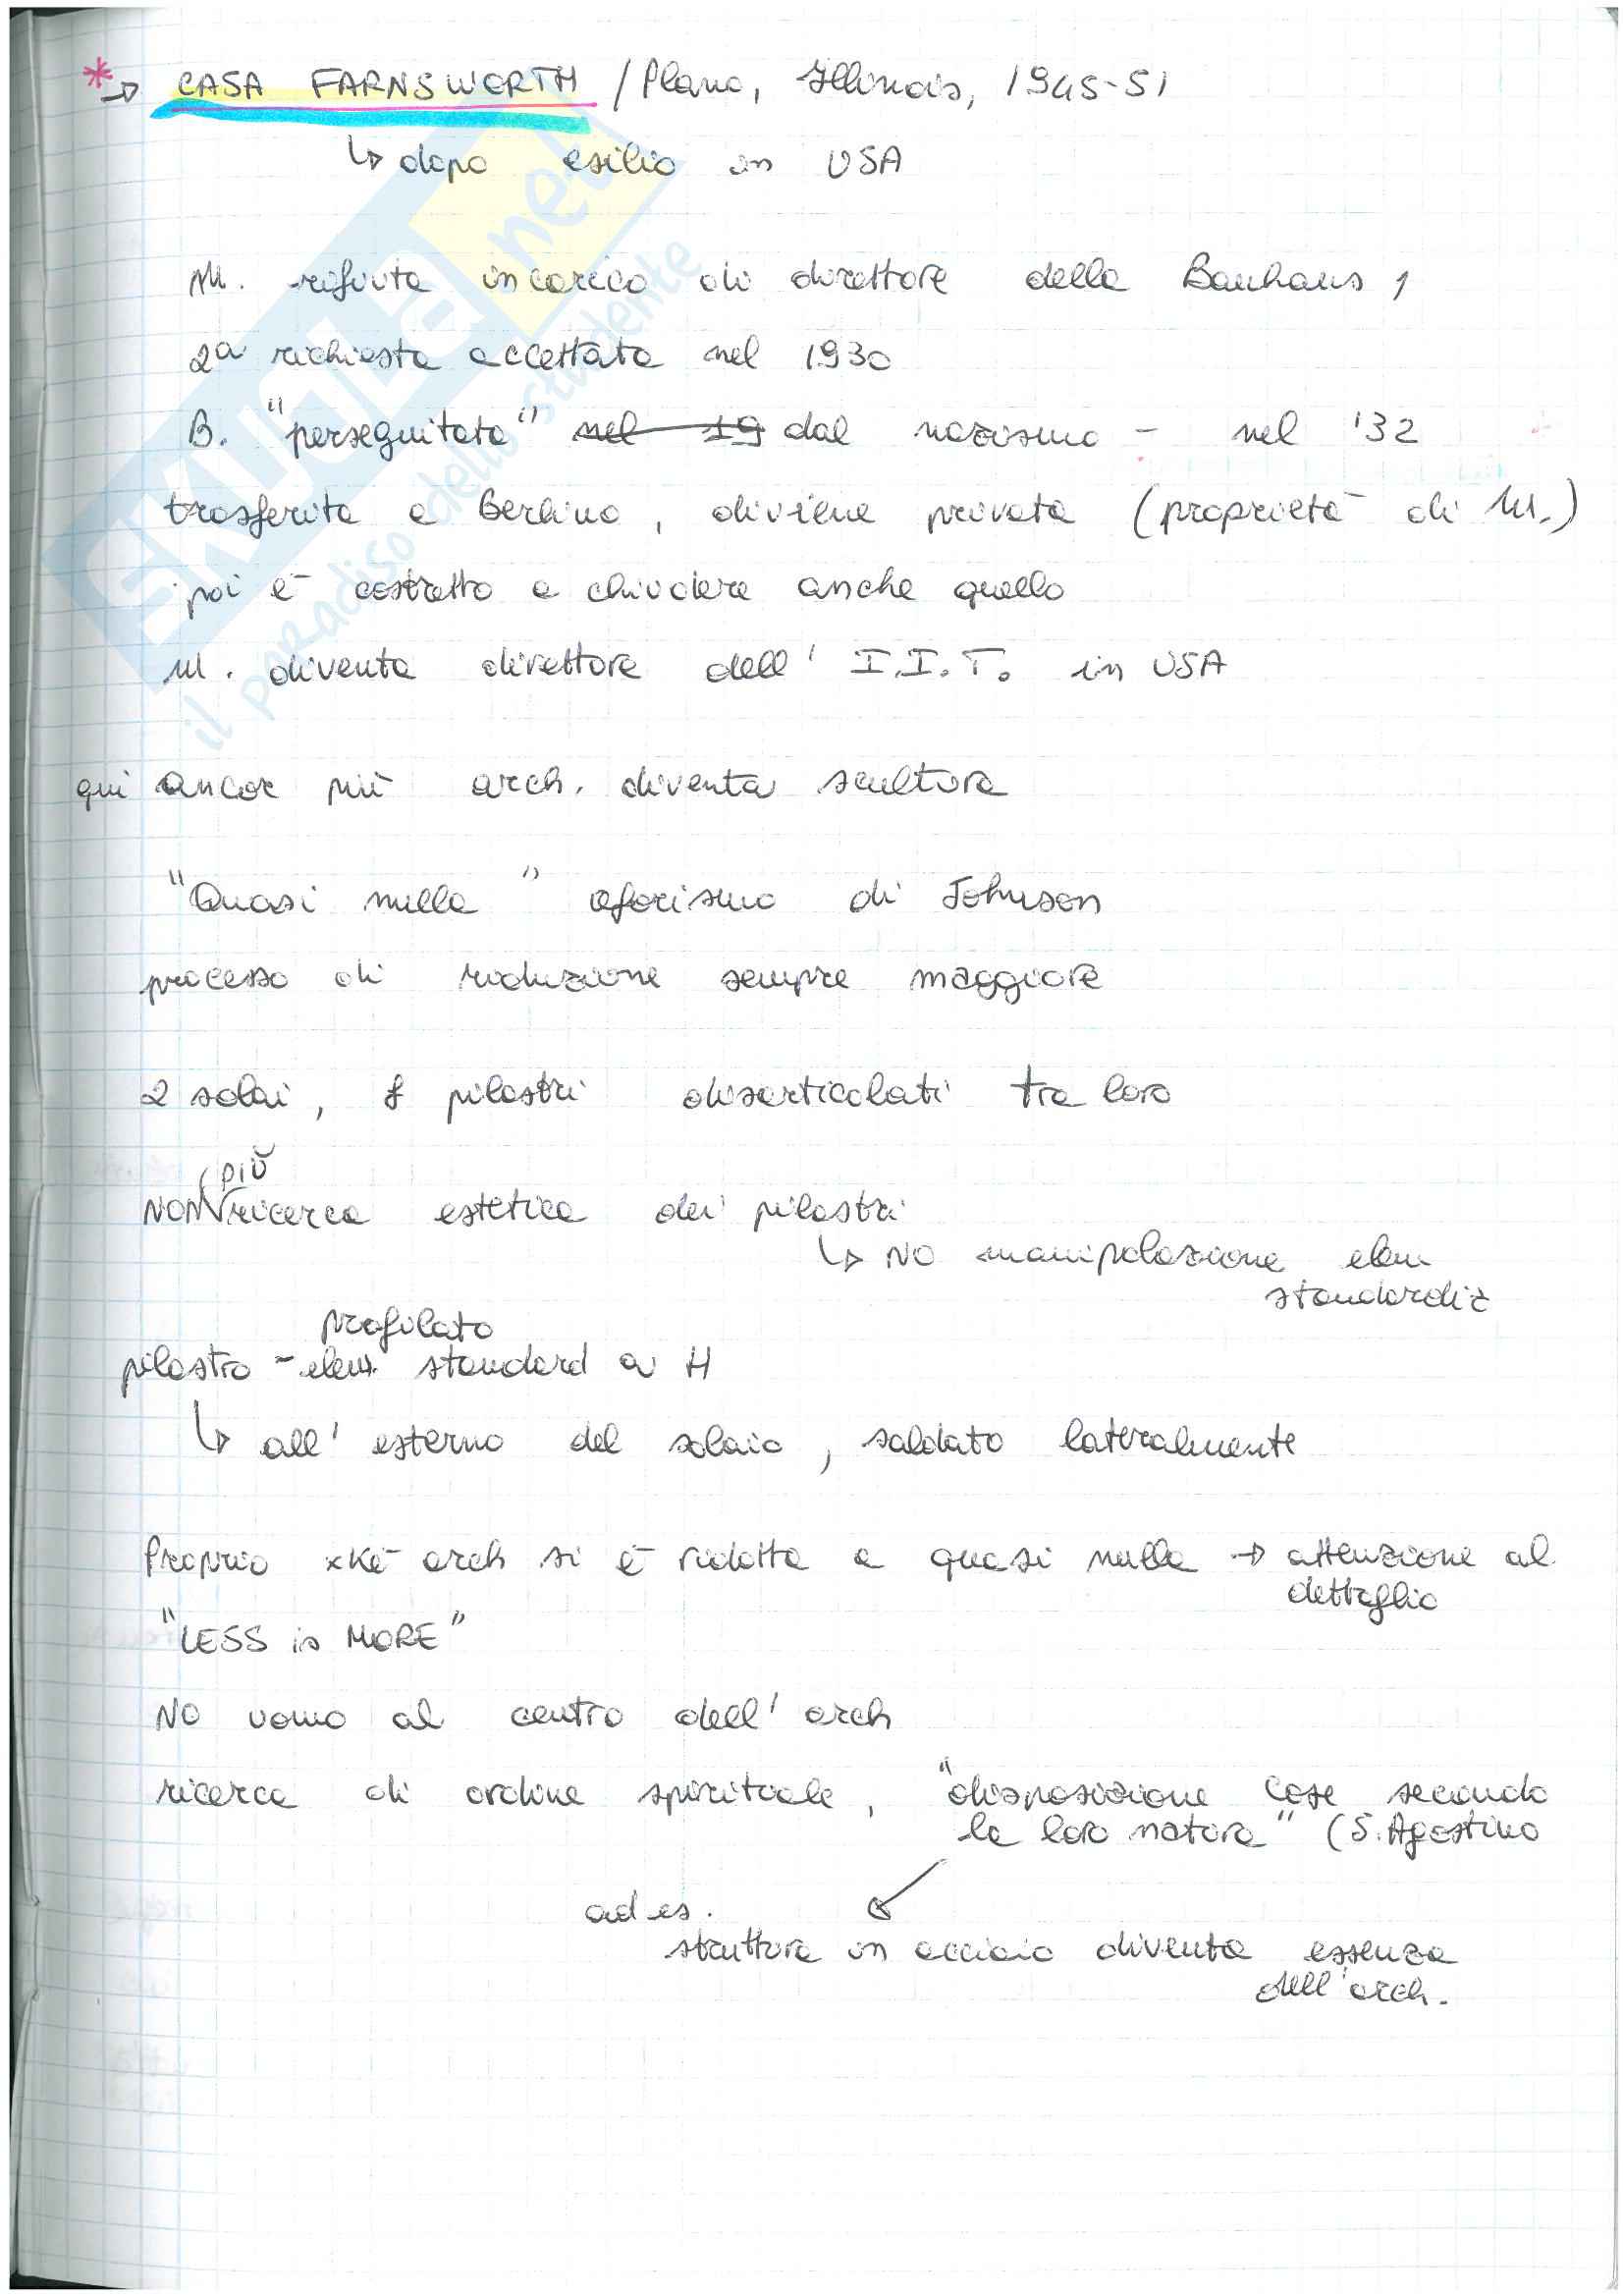 * → CASA FARNSWORTH / Plano, Illinois, 1945-51
↳ dopo esilio in USA
M. rifiuta incarico di direttore della Bauhaus,
2a richiesta accettata nel 1930
B. "perseguitata" nel 19 dal nazismo - nel '32
trasferita a Berlino, diviene privata (proprietà di M.)
poi è costretto a chiudere anche quella
M. diventa direttore dell' I.I.T. in USA
qui ancor più arch. diventa scultura
"Quasi nulla" aforisma di Johnson
processo di riduzione sempre maggiore
2 solai, 8 pilastri disarticolati tra loro
NON più ricerca estetica dei pilastri
↳ NO manipolazione elem
standardiz
profilato
pilastro - elem. standard a H
↳ all' esterno del solaio, saldato lateralmente
Proprio xkè arch si è ridotta a quasi nulla → attenzione al
dettaglio
"LESS is MORE"
NO uomo al centro dell' arch
ricerca di ordine spirituale, "disposizione cose secondo
la loro natura" (S. Agostino
ad es.
struttura in acciaio diventa essenza
dell'arch.
SKUOLA.net
il paradiso dello studente